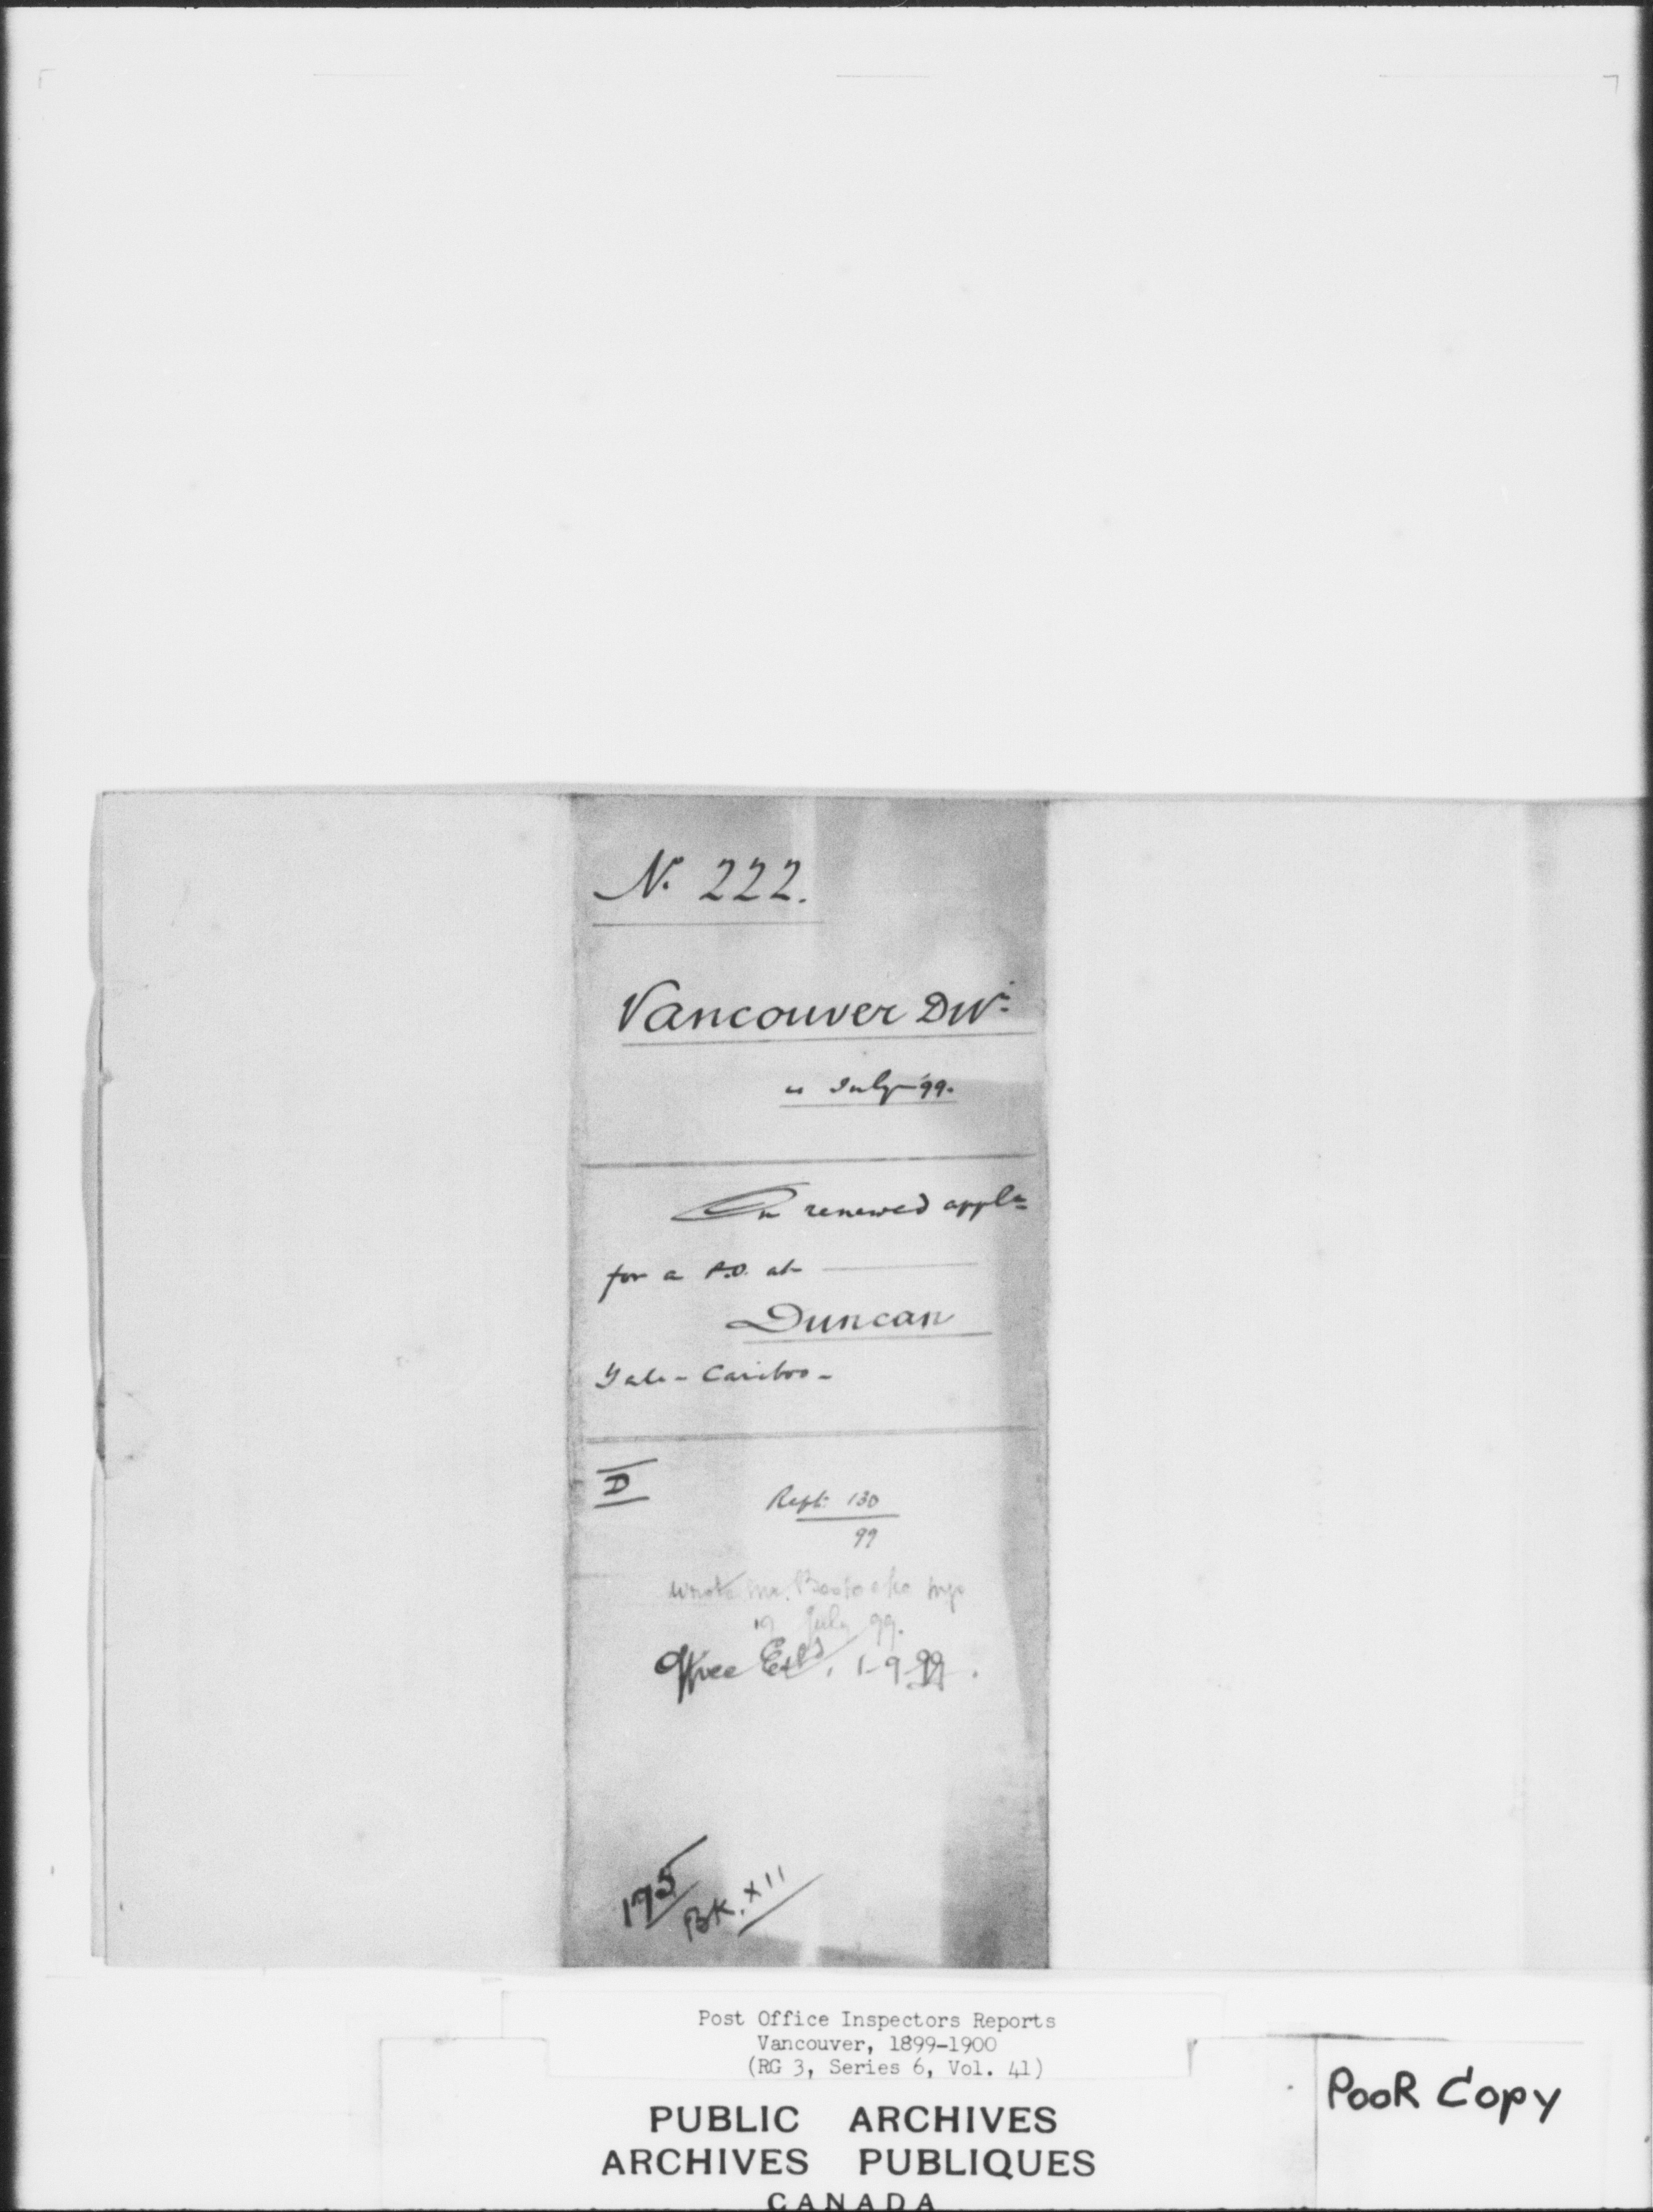 No. 222.
Vancouver Divn.
July 99.
On renewed appln
for a P.O. at
Duncan
Yale - Cariboo -
D
Rept. 130
99
Wrote Mr. Bostock
July 99.
Office Estd. 1-9-99.
175
BK. XII
Post Office Inspectors Reports
Vancouver, 1899-1900
(RG 3, Series 6, Vol. 41)
PUBLIC ARCHIVES
ARCHIVES PUBLIQUES
CANADA
POOR COPY